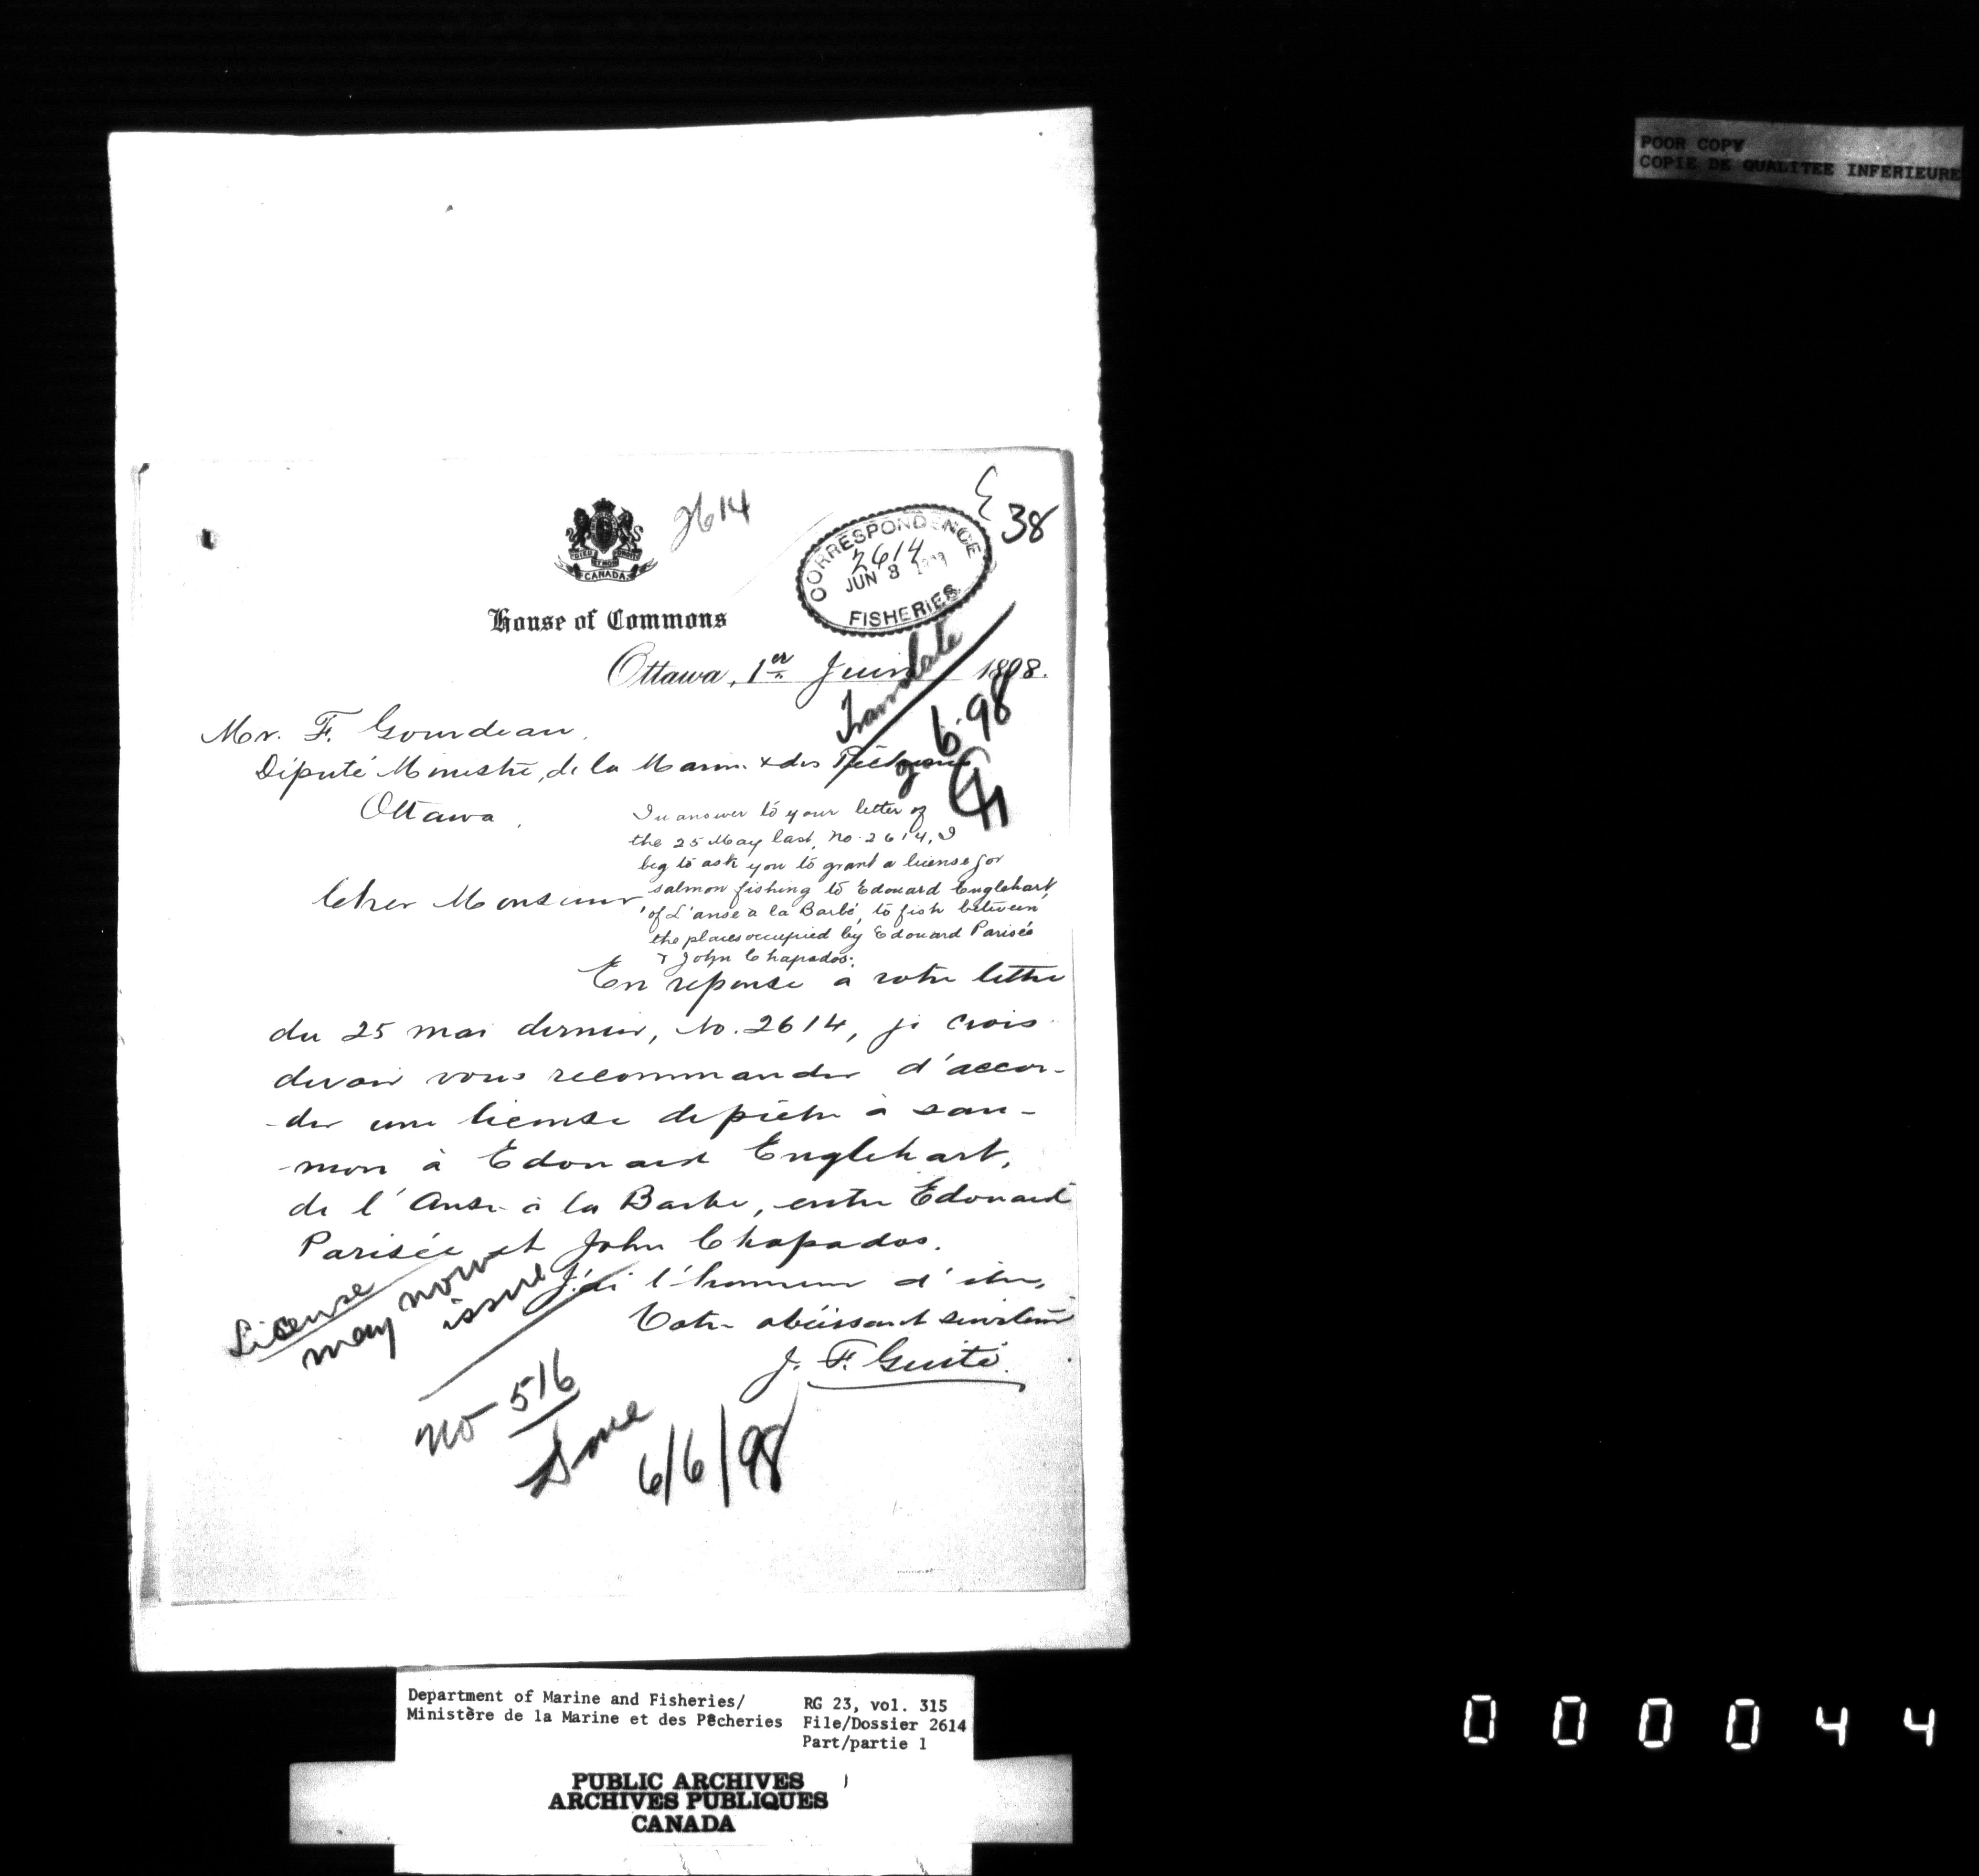 POOR COPY
COPIE DE QUALITEE INFERIEURE
2614
38
DIEU ET MON DROIT
CANADA
CORRESPONDENCE
2614
JUN 3
FISHERIES
House of Commons
Ottawa, 1er Juin 1898.
Translate
6.98
Mr. F. Gourdeau,
Député Ministre, de la Marine & des Pêcheries
Ottawa,
In answer to your letter of
the 25 May last, No. 2614, I
beg to ask you to grant a license for
salmon fishing to Edouard Englehart,
of L'anse à la Barbé, to fish between
the places occupied by Edouard Parisée
& John Chapados.
Cher Monsieur
En reponse a votre lettre
du 25 mai dernier, No. 2614, je crois
devoir vous recommander d'accor-
-der une license de pêche à sau-
-mon à Edouard Englehart,
de l'Anse à la Barbe, entre Edouard
Parisée et John Chapados.
J'ai l'honneur d'être,
Votre obéissant serviteur
J. F. Guité.
License
may now
issue
No 516
Done
6/6/98
Department of Marine and Fisheries/
Ministère de la Marine et des Pêcheries
RG 23, vol. 315
File/Dossier 2614
Part/partie 1
PUBLIC ARCHIVES
ARCHIVES PUBLIQUES
CANADA
000044